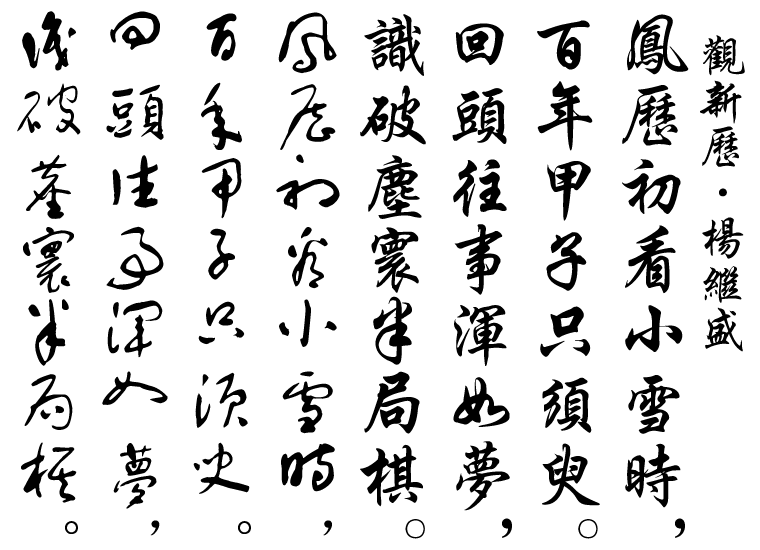 觀新歷·楊繼盛
鳳歷初看小雪時，
百年甲子只須臾。
回頭往事渾如夢，
識破塵寰半局棋。
鳳歷初看小雪時，
百年甲子只須臾。
回頭往事渾如夢，
識破塵寰半局棋。